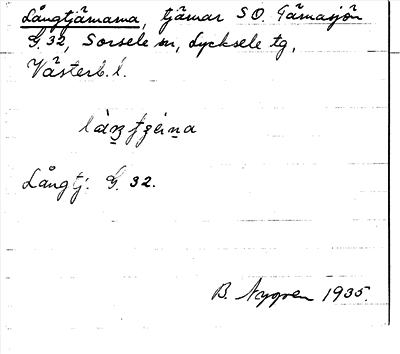 Långtjärnarna, tjärnar SO. Tärnasjön
G. 32, Sorsele sn, Lycksele tg,
Västerb. l.
Långtj. G. 32.
B. Nygren 1935.